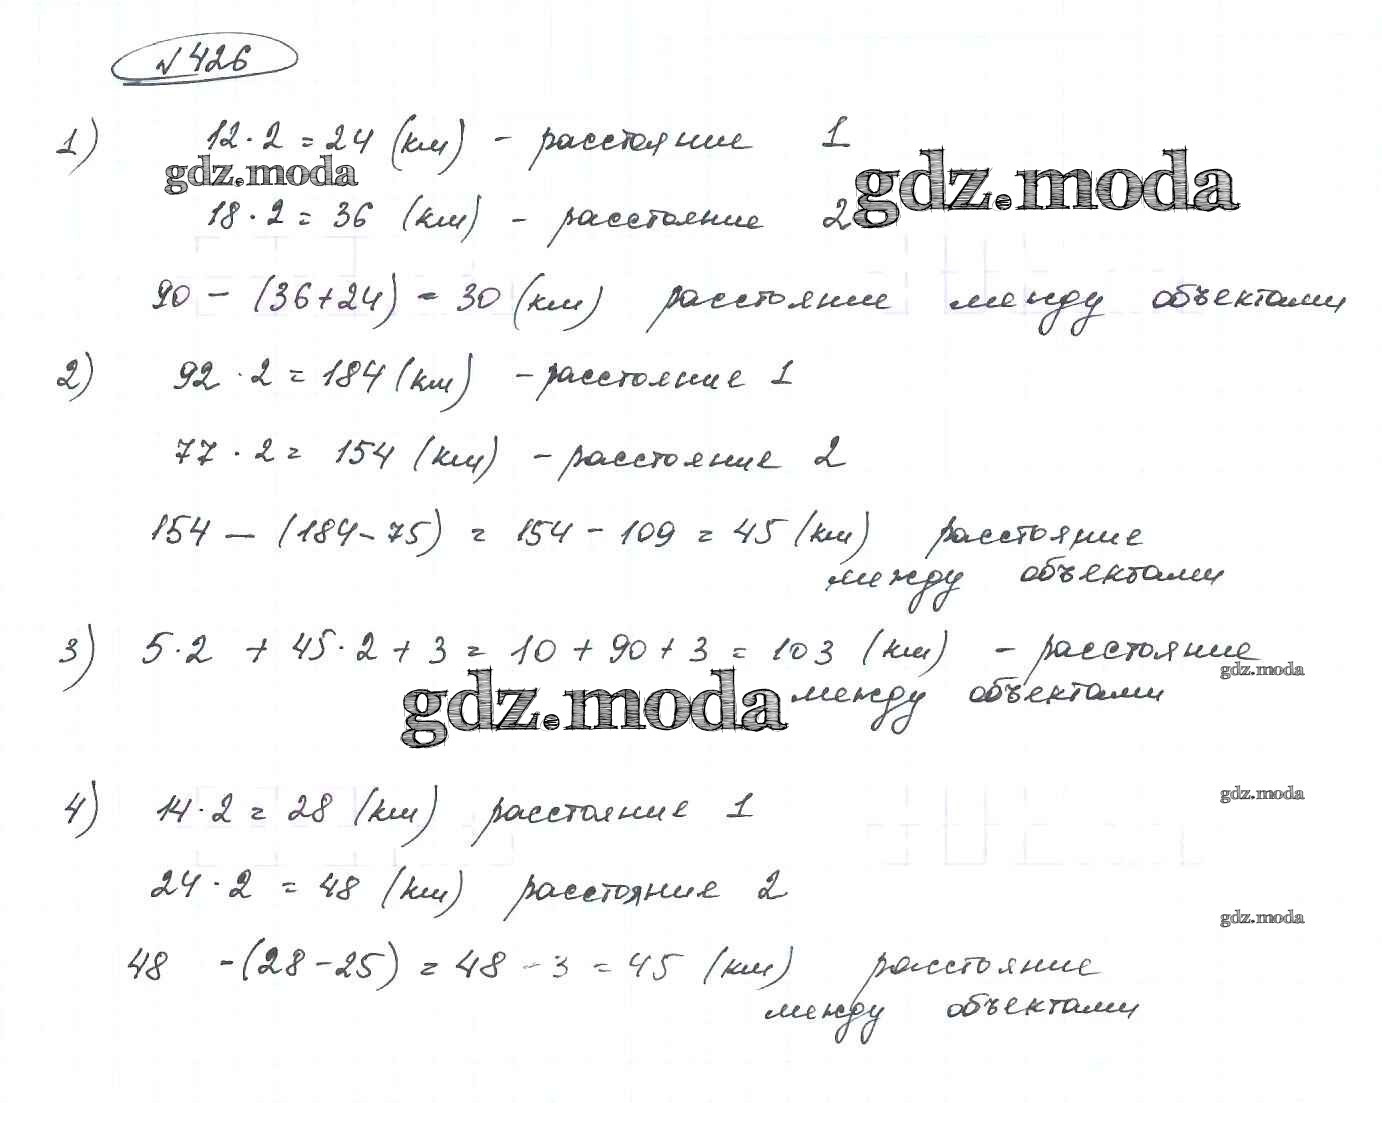 № 426
1) 12 · 2 = 24 (км) - расстояние 1
gdz.moda
gdz.moda
18 · 2 = 36 (км) - расстояние 2
90 - (36+24) = 30 (км) расстояние между объектами
2) 92 · 2 = 184 (км) - расстояние 1
77 · 2 = 154 (км) - расстояние 2
154 - (184-75) = 154 - 109 = 45 (км) расстояние
между объектами
3) 5·2 + 45·2 + 3 = 10 + 90 + 3 = 103 (км) - расстояние
gdz.moda
между объектами
gdz.moda
4) 14·2 = 28 (км) расстояние 1
gdz.moda
24 · 2 = 48 (км) расстояние 2
gdz.moda
48 -(28-25) = 48 - 3 = 45 (км) расстояние
между объектами